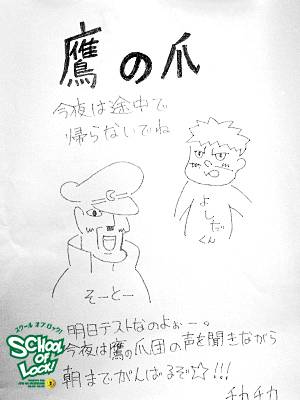 鷹の爪
今夜は途中で
帰らないでね
よしだ
くん
そーとー
明日テストなのよぉー。
今夜は鷹の爪団の声を聞きながら
朝までがんばるぞ☆!!!
チカチカ
スクール オブ ロック!
SCHOOL
OF
LOCK!